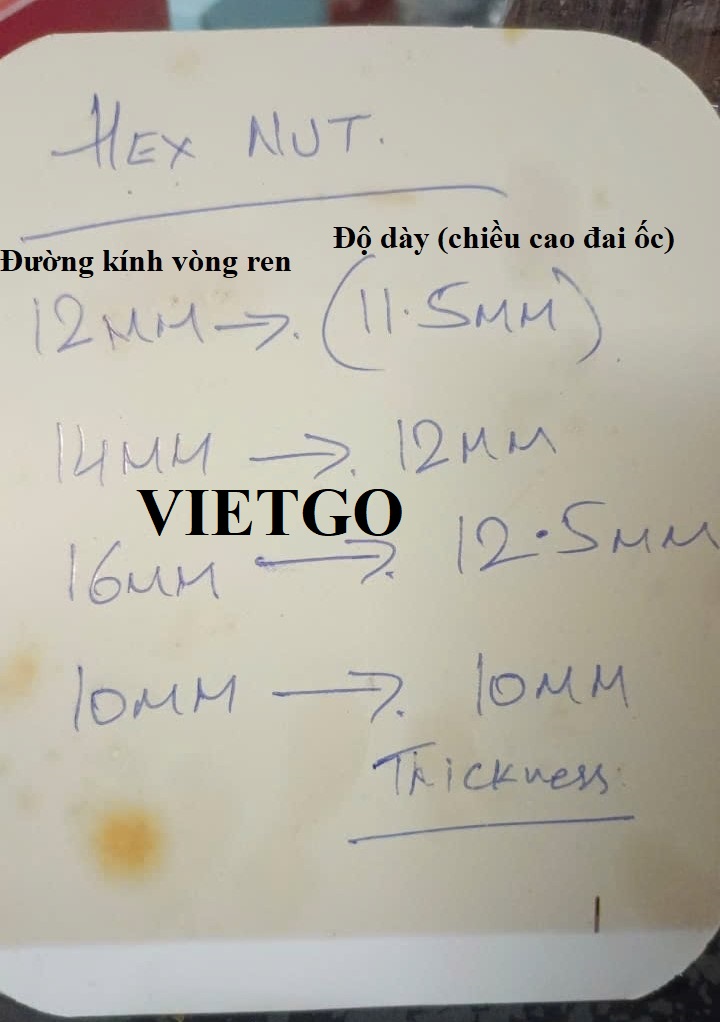 HEX NUT.
Đường kính vòng ren
Độ dày (chiều cao đai ốc)
12MM → (11.5MM)
14MM → 12MM
VIETGO
16MM → 12.5MM
10MM → 10MM
Thickness